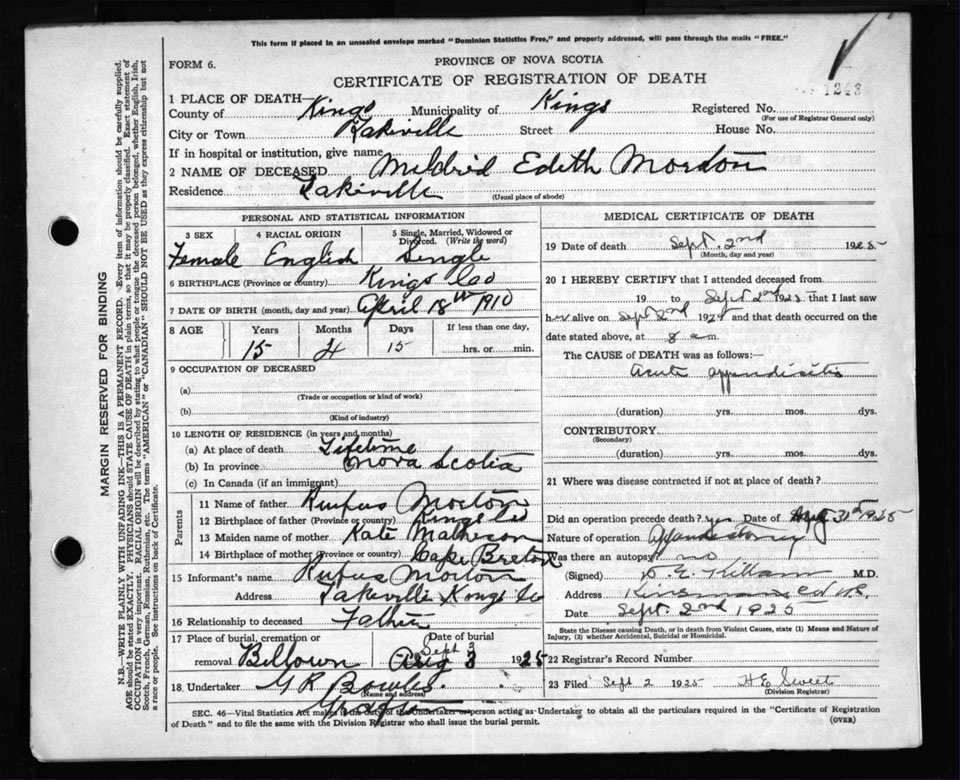 This form if placed in an unsealed envelope marked "Dominion Statistics Free," and properly addressed, will pass through the mails "FREE."
FORM 6.
PROVINCE OF NOVA SCOTIA
CERTIFICATE OF REGISTRATION OF DEATH
1243
1 PLACE OF DEATH—
County of Kings Municipality of Kings Registered No.
(For use of Registrar General only)
City or Town Lakeville Street House No.
If in hospital or institution, give name
2 NAME OF DECEASED Mildrid Edith Morton
Residence Lakeville
(Usual place of abode)
PERSONAL AND STATISTICAL INFORMATION
3 SEX 4 RACIAL ORIGIN 5 Single, Married, Widowed or Divorced. (Write the word)
Female English Single
6 BIRTHPLACE (Province or country) Kings Co
7 DATE OF BIRTH (month, day and year) April 18th 1910
8 AGE Years Months Days If less than one day,
15 4 15 hrs. or min.
9 OCCUPATION OF DECEASED
(a)
(Trade or occupation or kind of work)
(b)
(Kind of industry)
10 LENGTH OF RESIDENCE (in years and months)
(a) At place of death Lifetime
(b) In province Nova Scotia
(c) In Canada (if an immigrant)
Parents
11 Name of father Rufus Morton
12 Birthplace of father (Province or country) Kings Co
13 Maiden name of mother Kate Matheson
14 Birthplace of mother (Province or country) Cape Breton
15 Informant's name Rufus Morton
Address Lakeville Kings Co
16 Relationship to deceased Father
17 Place of burial, cremation or removal Billtown Date of burial Sept 3 Aug 3 1925
18. Undertaker G R Bowles
(Name and address)
Grafton
MEDICAL CERTIFICATE OF DEATH
19 Date of death Sept. 2nd 1925
(Month, day and year)
20 I HEREBY CERTIFY that I attended deceased from
19 to Sept 2nd 1925 that I last saw
her alive on Sept 2nd 1925 and that death occurred on
date stated above, at 8 a.m.
The CAUSE of DEATH was as follows:—
Acute appendisitis
(duration) yrs. mos. dys.
CONTRIBUTORY
(Secondary)
(duration) yrs. mos. dys.
21 Where was disease contracted if not at place of death?
Did an operation precede death? yes Date of Aug 31st 1925
Nature of operation
Was there an autopsy? no
(Signed) Killam M.D.
Address Kinsmans Co
Date Sept. 2nd 1925
State the Disease causing Death, or in death from Violent Causes, state (1) Means and Nature of Injury, (2) whether Accidental, Suicidal or Homicidal.
22 Registrar's Record Number
23 Filed Sept 2 1925 H E Sweet
(Division Registrar)
SEC. 46—Vital Statistics Act makes it the duty of the Undertaker or person acting as Undertaker to obtain all the particulars required in the "Certificate of Registration of Death" and to file the same with the Division Registrar who shall issue the burial permit.
(OVER)
MARGIN RESERVED FOR BINDING
N.B.—WRITE PLAINLY WITH UNFADING INK—THIS IS A PERMANENT RECORD. Every item of information should be carefully supplied.
AGE should be stated EXACTLY. PHYSICIANS should STATE CAUSE OF DEATH in plain terms, so that it may be properly classified. Exact statement of
OCCUPATION is very important. RACIAL ORIGIN will be described by stating to what people or tongue the deceased person belonged, whether English, Irish,
Scotch, French, German, Russian, Ruthenian, etc. The terms "AMERICAN" or "CANADIAN" SHOULD NOT BE USED as they express citizenship but not
a race or people. See instructions on back of Certificate.